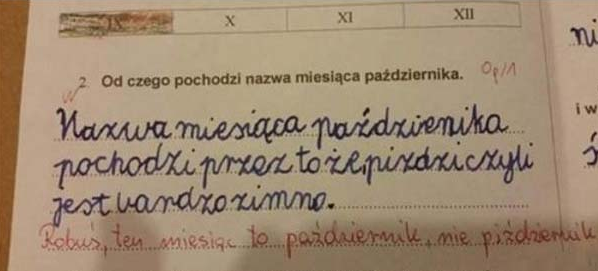 X XI XII
ni
2. Od czego pochodzi nazwa miesiąca października. 0p/1
i w
Nazwa miesiąca paździenika
pochodzi przez to że, pizdzi czyli
jest bardzo zimno.
Robuś, ten miesiąc to październik, nie piździernik